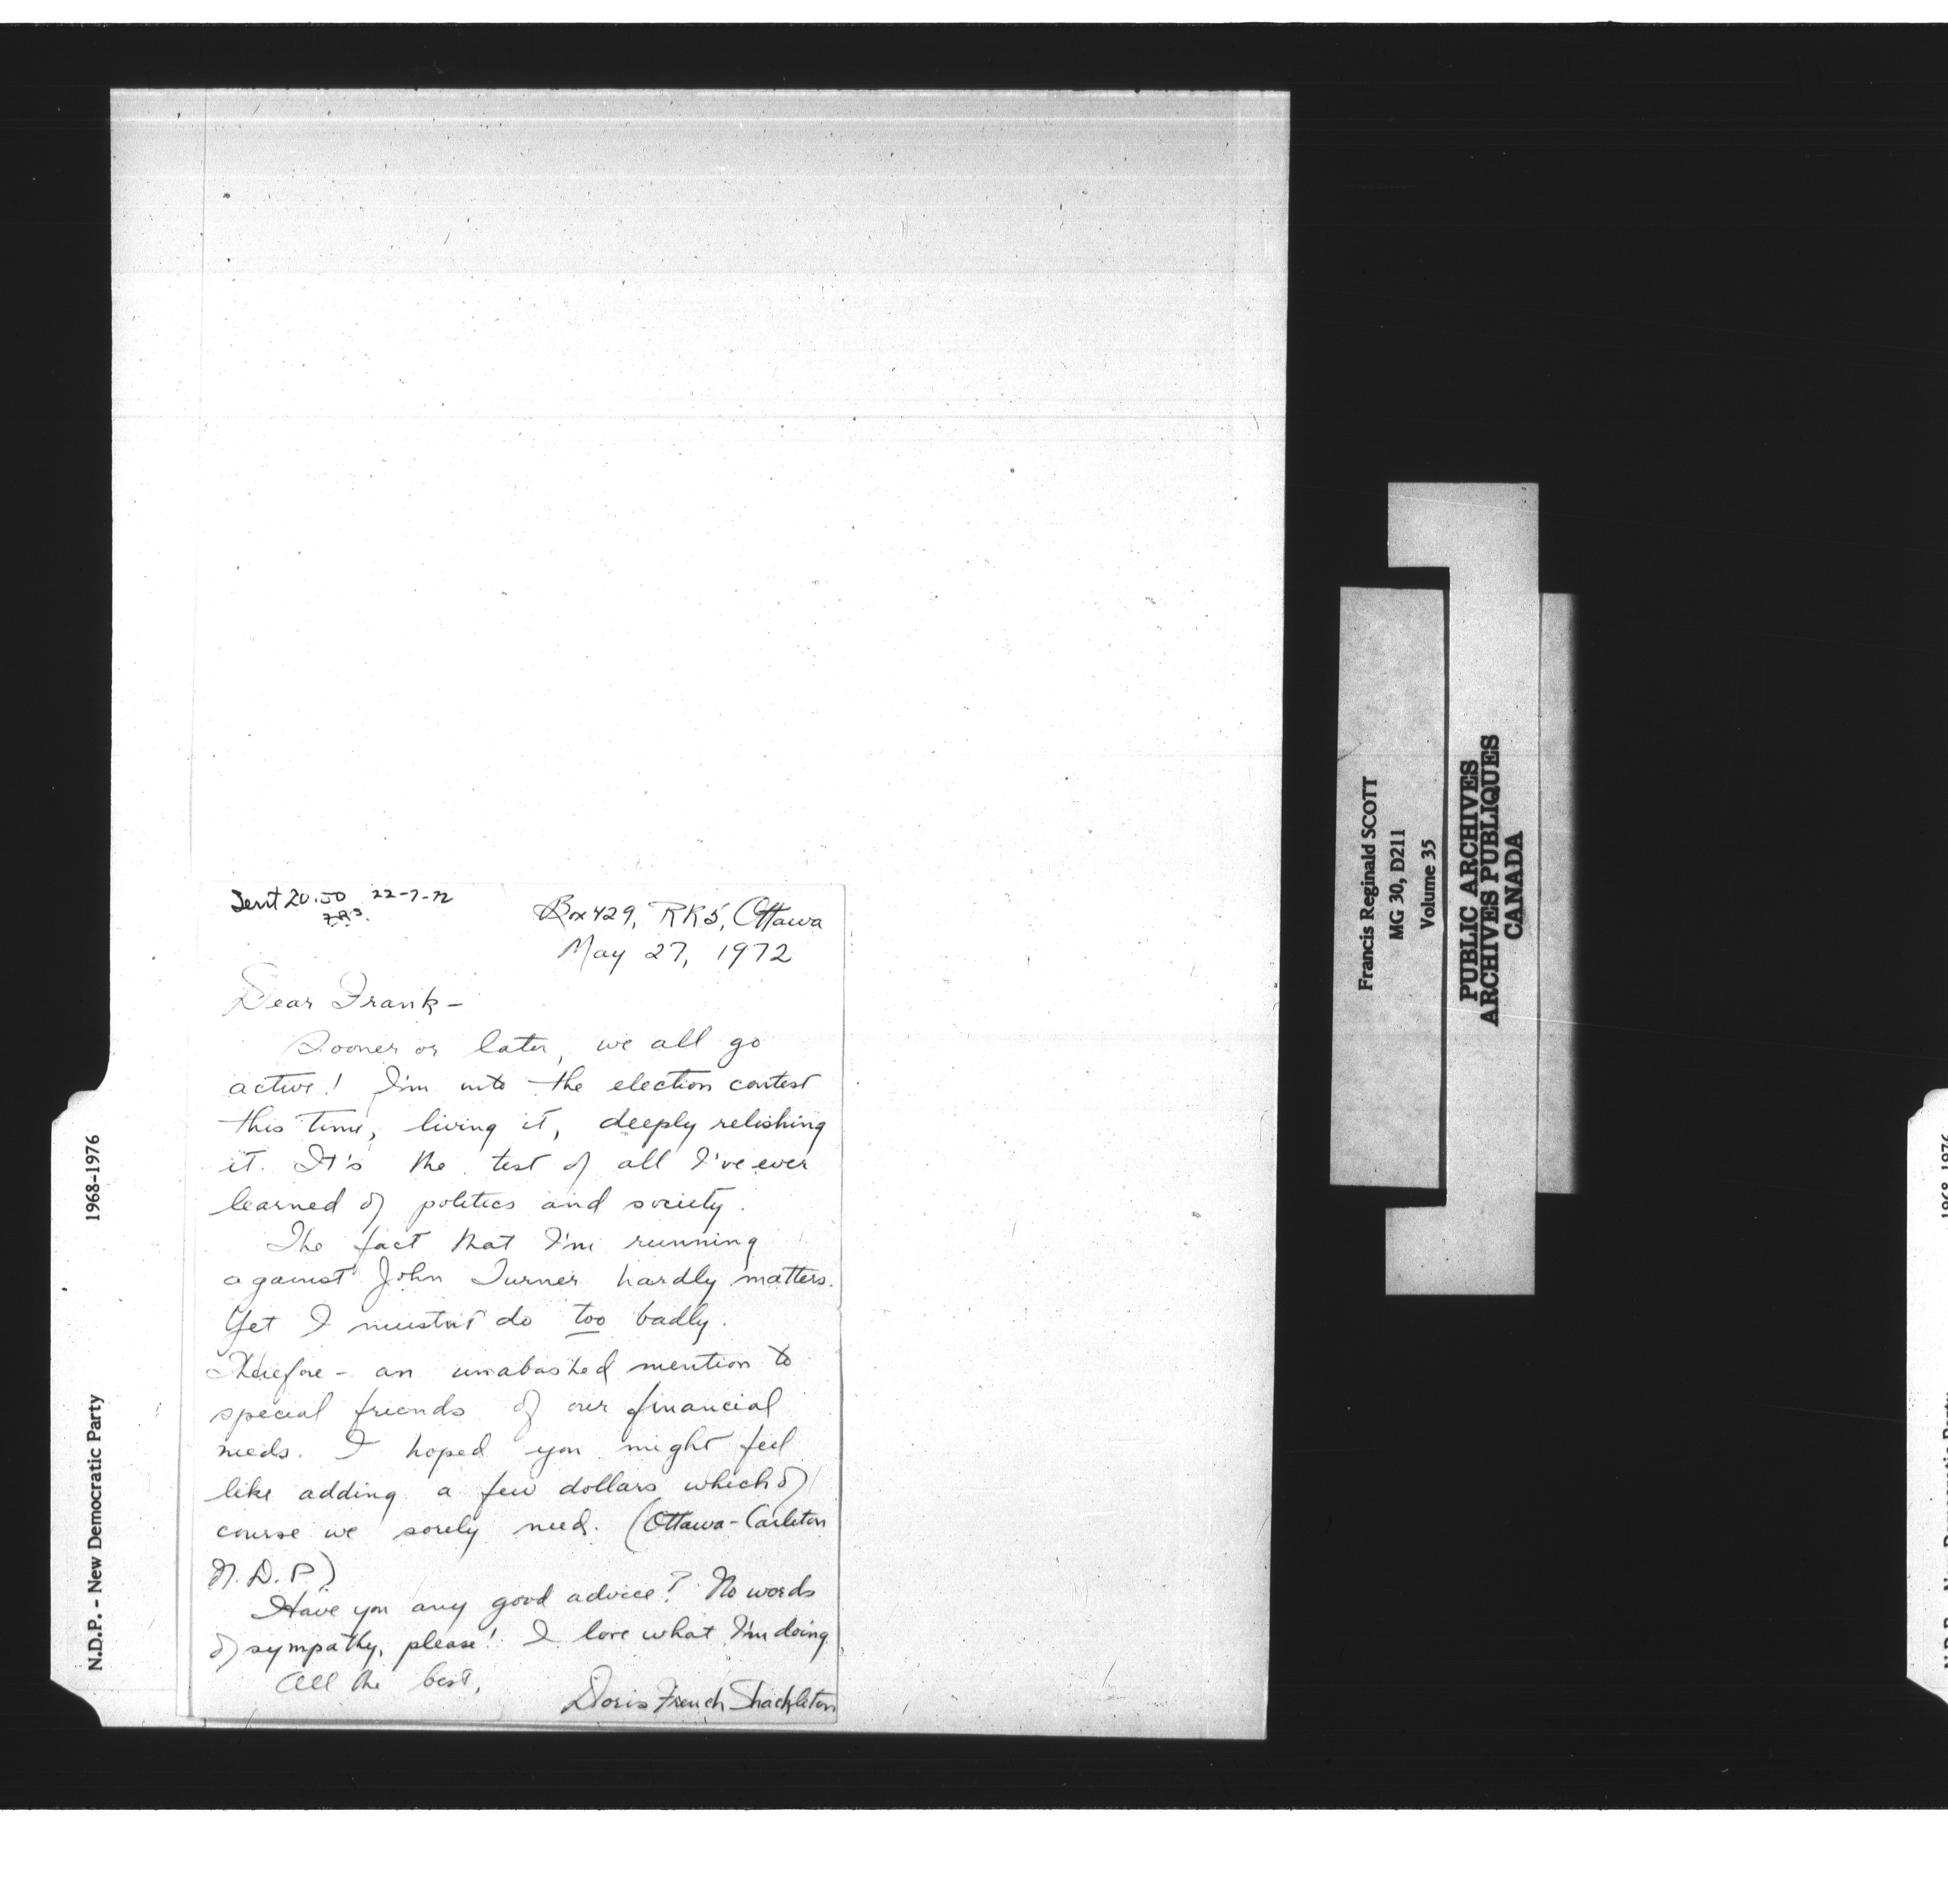 Sent 20.50 22-7-72
F.R.S.
Box 429, RR5, Ottawa
May 27, 1972
Dear Frank -
Sooner or later, we all go
active! I'm into the election contest
this time, living it, deeply relishing
it. It's the test of all I've ever
learned of politics and society.
The fact that I'm running
against John Turner hardly matters.
Yet I mustn't do too badly.
Therefore - an unabashed mention to
special friends of our financial
needs. I hoped you might feel
like adding a few dollars which of
course we sorely need. (Ottawa-Carleton
N.D.P.)
Have you any good advice? No words
of sympathy, please! I love what I'm doing.
All the best,
Doris French Shackleton
N.D.P. - New Democratic Party 1968-1976
Francis Reginald SCOTT
MG 30, D211
Volume 35
PUBLIC ARCHIVES
ARCHIVES PUBLIQUES
CANADA